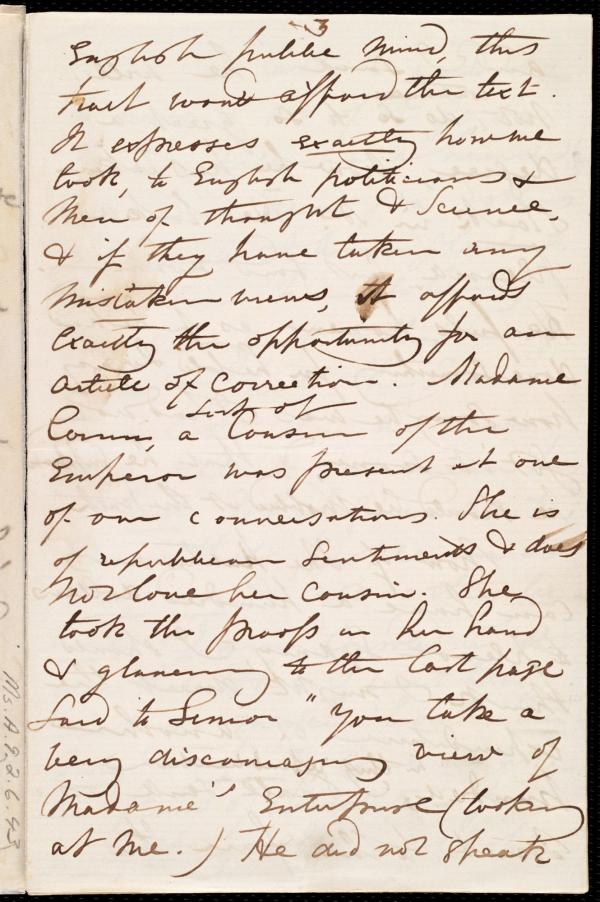 3
English public mind, this
tract would afford the text.
It expresses exactly how we
look, to English politicians &
Men of thought & Science,
& if they have taken any
mistaken views, it affords
exactly the opportunity for an
article of correction. Madame
sort of
Cornu, a Cousin of the
Emperor was present at one
of our conversations. She is
of republican sentiments & does
not love her cousin. She
took the proofs in her hand
& glancing to the last page
said to Senior "you take a
very discouraging view of
Madame's Enterprise (looking
at me.) He did not speak
Ms.A.9.2.6.43